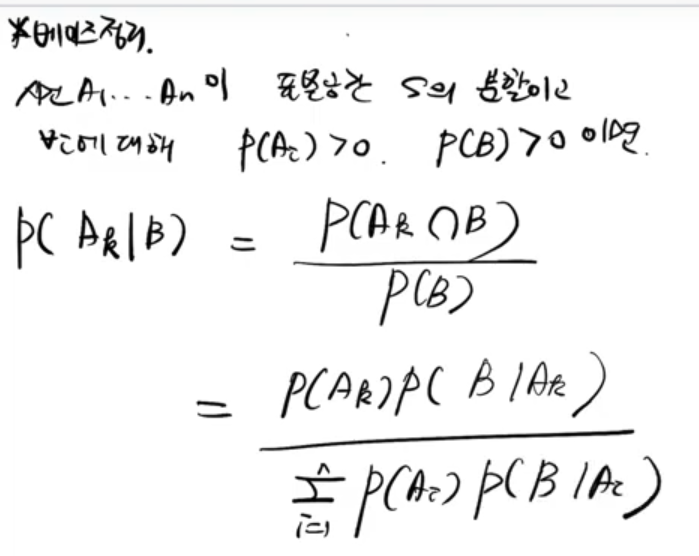 *베이즈정리.
사건 A₁...Aₙ이 표본공간 S의 분할이고
∀i에 대해 P(Aᵢ)>0. P(B)>0 이면.
P(Aₖ|B) = P(Aₖ∩B) / P(B)
= P(Aₖ)P(B|Aₖ) / ∑ᵢ₌₁ⁿ P(Aᵢ)P(B|Aᵢ)